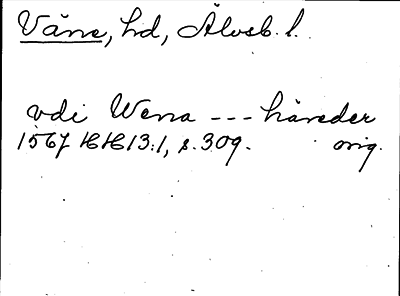 Väne, hd, Älvsb. l.
vdi Wena --- häreder
1567 HH 13:1, s. 309. orig.